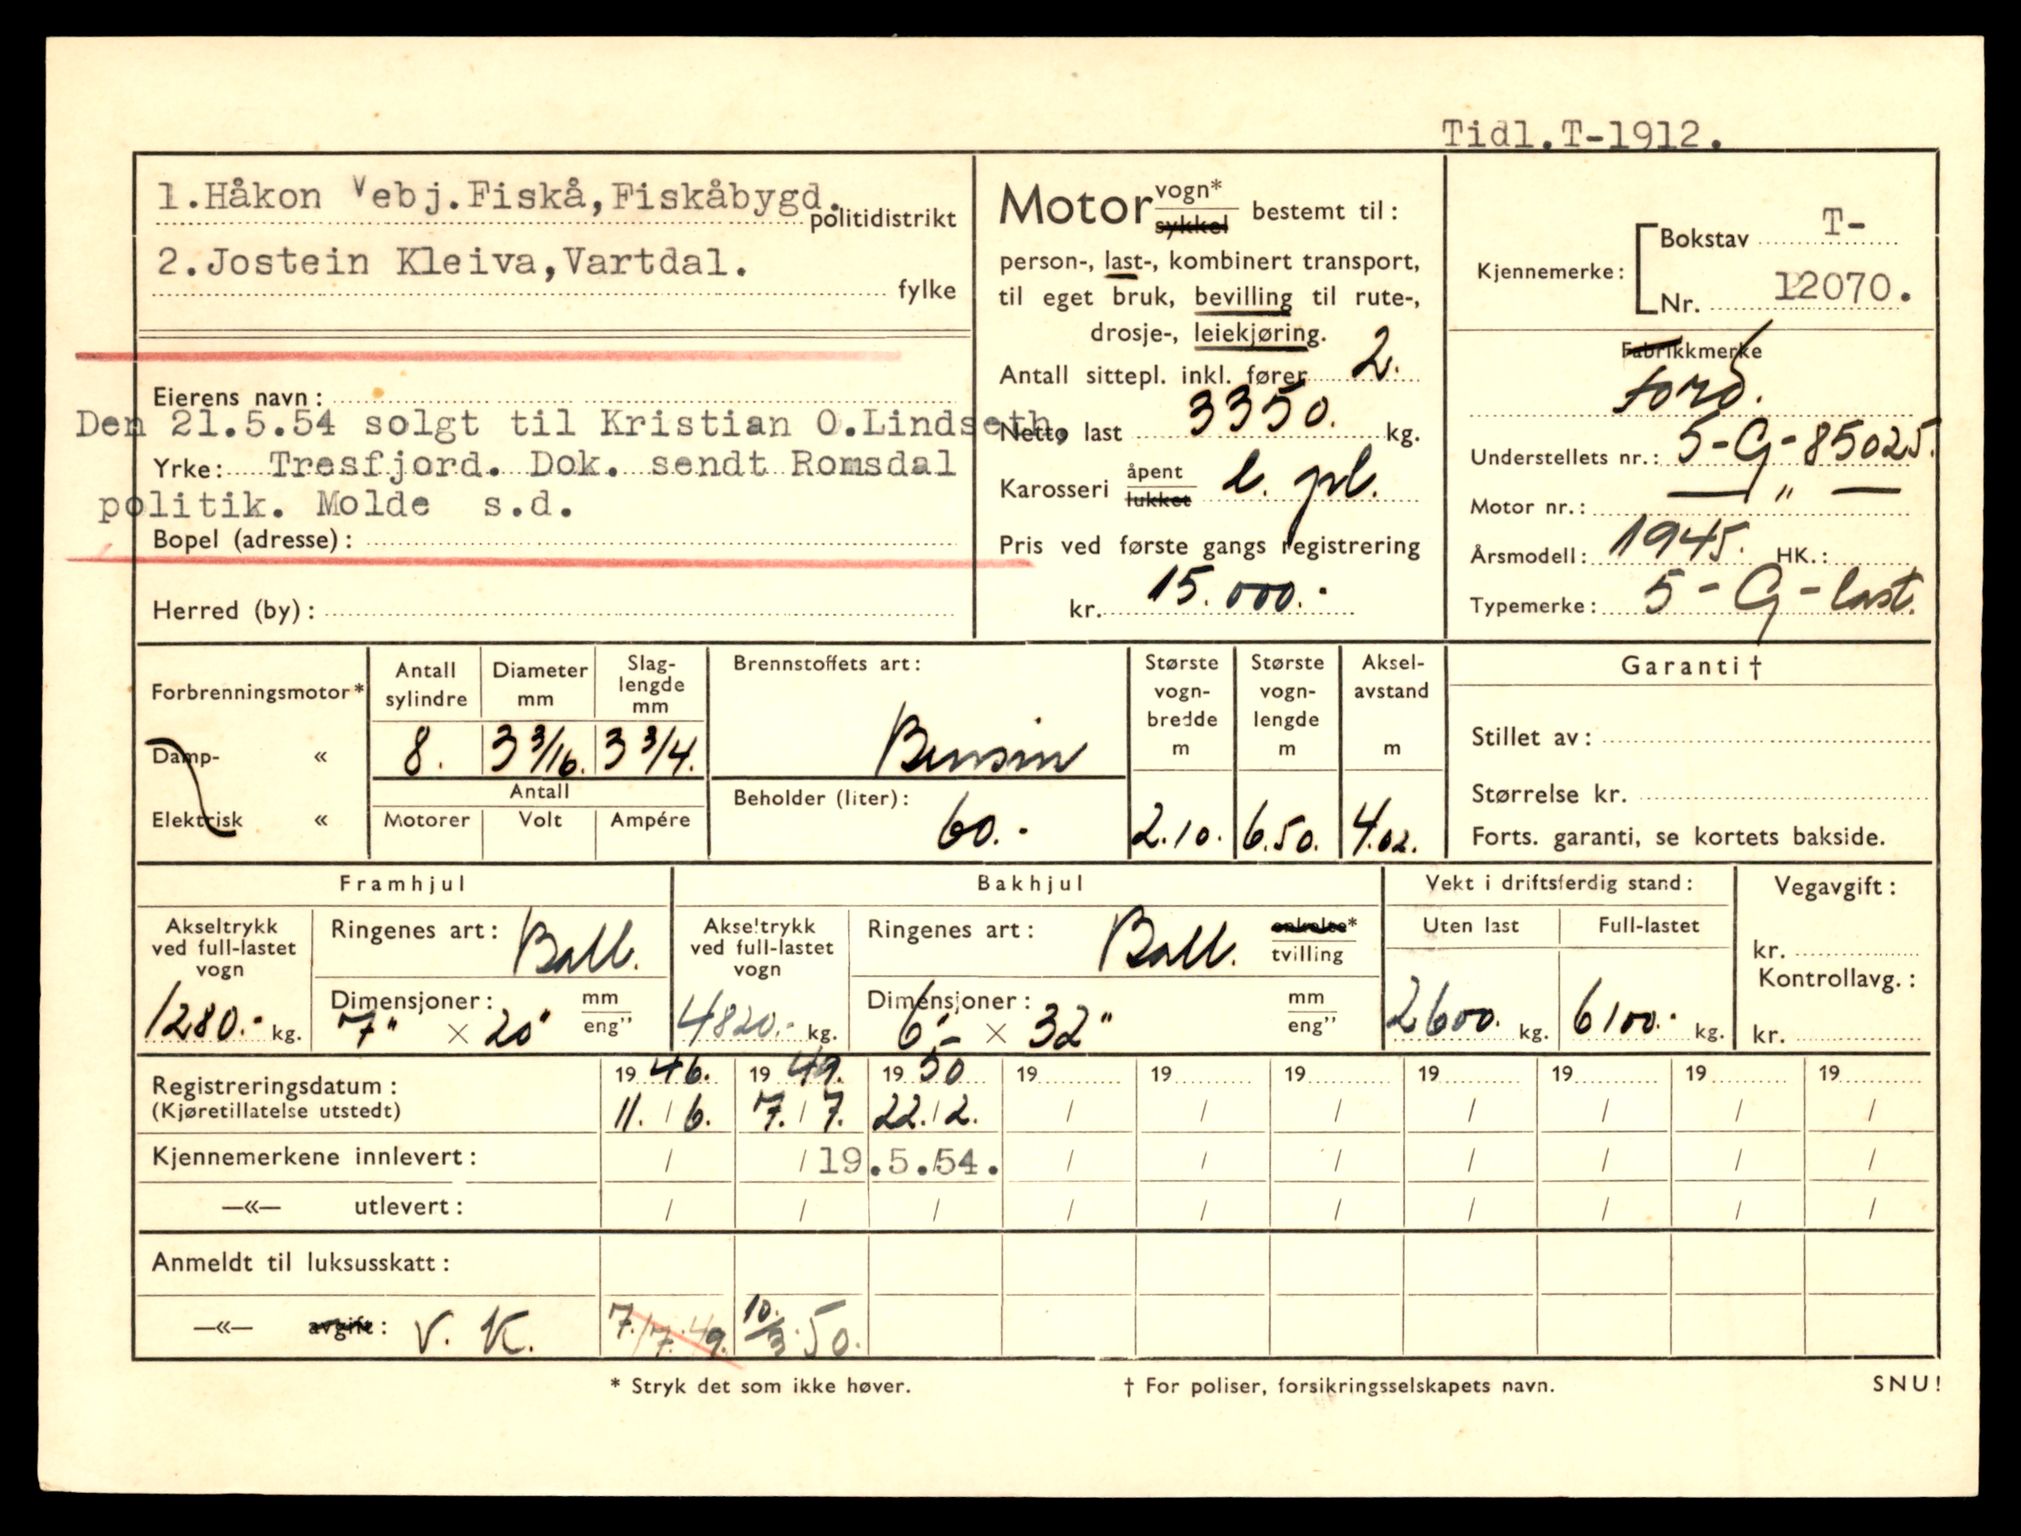 Tidl.T-1912.
1.Håkon Vebj.Fiskå,Fiskåbygd.
politidistrikt
2.Jostein Kleiva,Vartdal.
fylke
Eierens navn:
Den 21.5.54 solgt til Kristian O.Lindseth,
Yrke: Tresfjord. Dok. sendt Romsdal
politik. Molde s.d.
Bopel (adresse):
Herred (by):
Motor vogn* sykkel bestemt til:
person-, last-, kombinert transport,
til eget bruk, bevilling til rute-,
drosje-, leiekjøring.
Antall sittepl. inkl. fører 2.
Netto last 3350. kg.
Karosseri åpent lukket l. pl.
Pris ved første gangs registrering
kr. 15.000.-
Kjennemerke: Bokstav T-
Nr. 12070.
Fabrikkmerke
Ford.
Understellets nr.: 5-G-85025.
Motor nr.: — " —
Årsmodell: 1945. HK.:
Typemerke: 5-G-last.
Forbrenningsmotor*
Damp- «
Elektrisk «
Antall sylindre
Diameter mm
Slaglengde mm
8. 3 3/16. 3 3/4.
Antall
Motorer Volt Ampére
Brennstoffets art:
Bensin
Beholder (liter):
60.-
Største vognbredde m
2.10.
Største vognlengde m
6.50.
Akselavstand m
4.02.
Garanti †
Stillet av:
Størrelse kr.
Forts. garanti, se kortets bakside.
Framhjul
Akseltrykk ved full-lastet vogn
1280.- kg.
Ringenes art: Ball.
Dimensjoner: mm eng”
7" × 20"
Bakhjul
Akseltrykk ved full-lastet vogn
4820.- kg.
Ringenes art: Ball. enkelte* tvilling
Dimensjoner: mm eng”
6" × 32"
Vekt i driftsferdig stand:
Uten last Full-lastet
2600. kg. 6100.- kg.
Vegavgift:
kr.
Kontrollavg.:
kr.
Registreringsdatum: 19 46. 19 49. 19 50 19 19 19 19 19 19 19
(Kjøretillatelse utstedt) 11. / 6. 7. / 7. 22. / 2. / / / / / / /
Kjennemerkene innlevert: / / 19.5.54. / / / / / / /
—«— utlevert: / / / / / / / / / /
Anmeldt til luksusskatt:
—«— avgift: V. K. 7./7.49. 10./3.50.
* Stryk det som ikke høver. † For poliser, forsikringsselskapets navn. SNU!